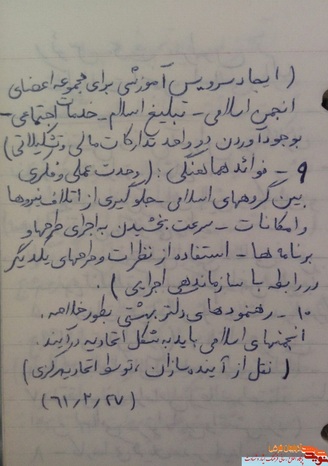 ( ایجاد سرویس آموزشی برای مجموعه اعضای
انجمن اسلامی - تبلیغ اسلام - خدمات اجتماعی -
بوجود آوردن دو واحد تدارکات مالی و تشکیلاتی )
۹ - فوائد هماهنگی : ( وحدت عملی و فکری
بین گروههای اسلامی - جلوگیری از اتلاف نیروها
و امکانات - سرعت بخشیدن به اجرای طرحها و
برنامه ها - استفاده از نظرات و طرحهای یکدیگر
در رابطه با سازماندهی اجرایی ) .
۱۰ - رهنمودهای دکتر بهشتی بطور خلاصه .
انجمنهای اسلامی باید به شکل اتحادیه درآیند .
( نقل از آینده سازان ، توسط اتحادیه مرکزی )
( ۶۱/۲/۲۷ )